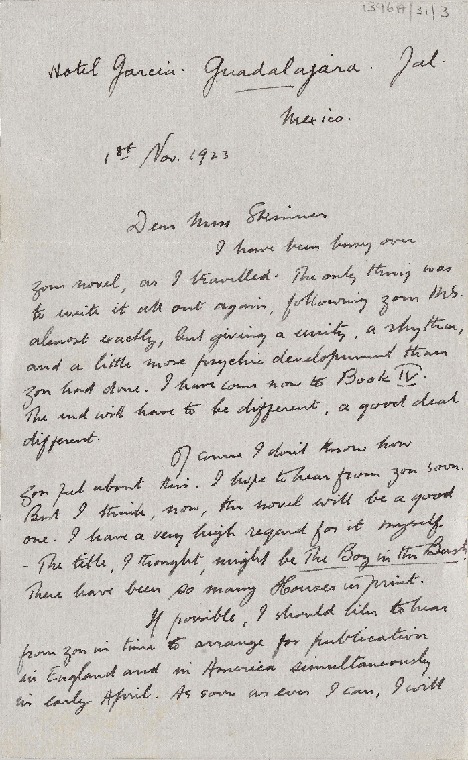 1396H/31/3
Hotel Garcia. Guadalajara. Jal.
Mexico.
1st Nov. 1923
Dear Miss Skinner
I have been busy over
your novel, as I travelled. The only thing was
to write it all out again, following your MS.
almost exactly, but giving a unity, a rhythm,
and a little more psychic development than
you had done. I have come now to Book IV.
The end will have to be different, a good deal
different.
Of course I don't know how
you feel about this. I hope to hear from you soon.
But I think, now, the novel will be a good
one. I have a very high regard for it myself.
- The title, I thought, might be The Boy in the Bush.
There have been so many Houses in print.
If possible, I should like to hear
from you in time to arrange for publication
in England and in America simultaneously
in early April. As soon as ever I can, I will